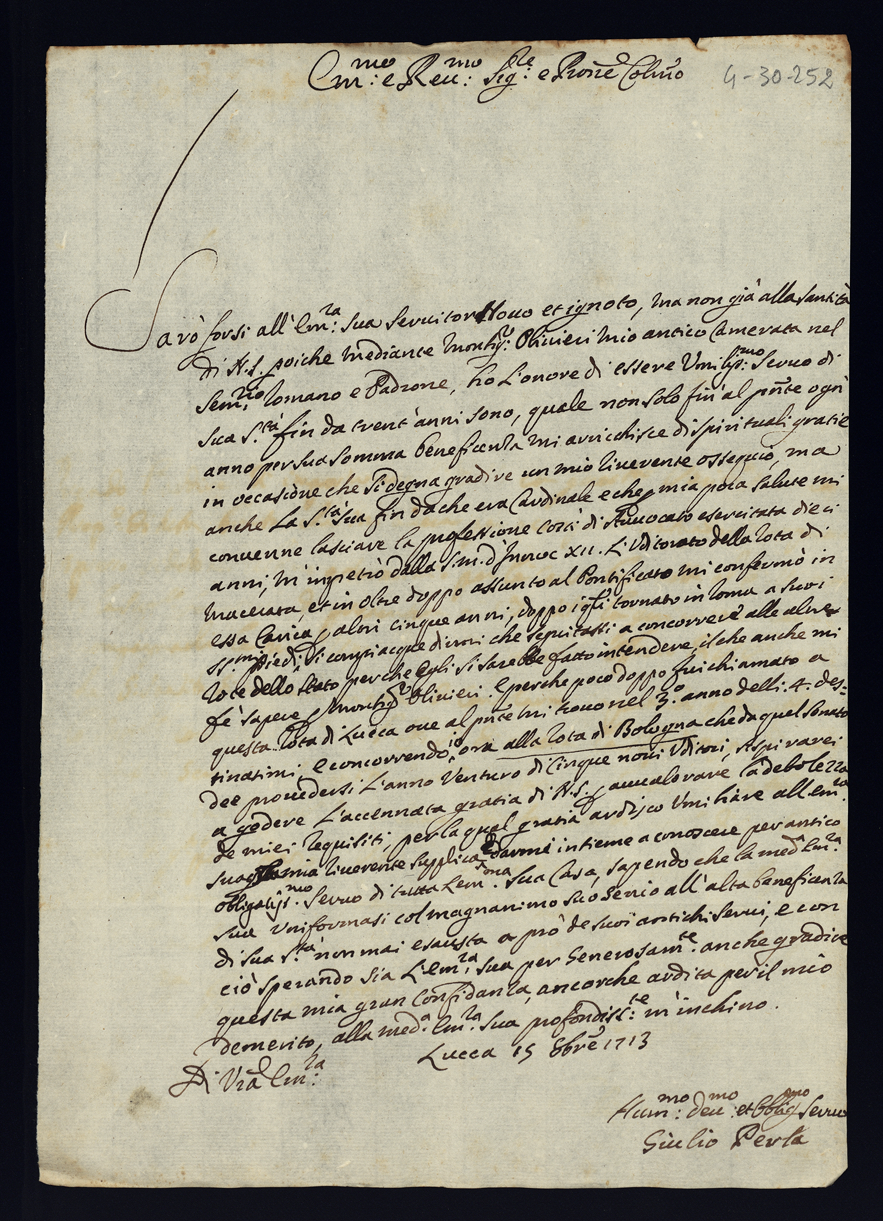 Em.mo: e Reu.mo: Sig.re: e Prõne Colmõ
4-30-252
Sarò forsi all'Em.za: sua seruitor Nouo et ignoto, ma non già alla santità
di N.S. poiche mediante Monsig.r: Oliuieri mio antico Camerata nel
Sem.rio Romano e Padrone, hò l'onore di essere Vmiliss.mo: seruo di
sua S.tà fin da trent'anni sono, quale non solo fin al pñte ogni
anno per sua somma beneficenza mi arricchisce di spirituali gratie
in occasione che si degna gradire un mio riuerente ossequio, ma
anche la S.tà sua fin da che era Cardinale e che p mia poca salute mi
conuenne lasciare la professione costì di Auuocato esercitata dieci
anni, m'impetrò dalla S.m. d'Innoc XII. l'Vditorato della rota di
Macerata, et in oltre doppo assunto al Pontificato mi confermò in
essa Carica p altri cinque anni, doppo i q̃li tornato in Roma a suoi
ss.mi Piedi si compiacque dirmi che seguitassi a concorrere alle altre
rote dello stato perche Egli si sarebbe fatto intendere, il che anche mi
fè sapere p Monsig.r Oliuieri. E perche poco doppo fui chiamato a
questa rota di Lucca oue al pñte mi trouo nel 3.o anno delli .4. des=
tinatimi, e concorrendo io ora alla rota di Bologna che da quel senato
dee prouedersi l'anno Venturo di Cinque noui Vditori, aspirarei
a godere l'accennata gratia di N.S. p auualorare la debolezza
de miei requisiti, per la qual gratia ardisco Vmiliare all'Em.za
sua mia riuerente supplica, e darmi insieme a conoscere per antico
obligatiss.mo: seruo di tutta l'Em.ma: sua Casa, sapendo che la med.a Em.za:
sua Vniformasi col magnanimo suo Genio all'alta beneficenza
di sua S.tà non mai esausta a prò de suoi antichi serui, e con
ciò sperando sia l'Em.za: sua per Generosam.te: anche gradire
questa mia gran confidanza, ancorche ardita per il mio
demerito, alla med.a: Em.za: sua profondiss.te: m'inchino.
Di Vrã Em.za:
Lucca 15 8bre 1713
Hum.mo: deu.mo: et Oblig.mo seruo
Giulio Perla